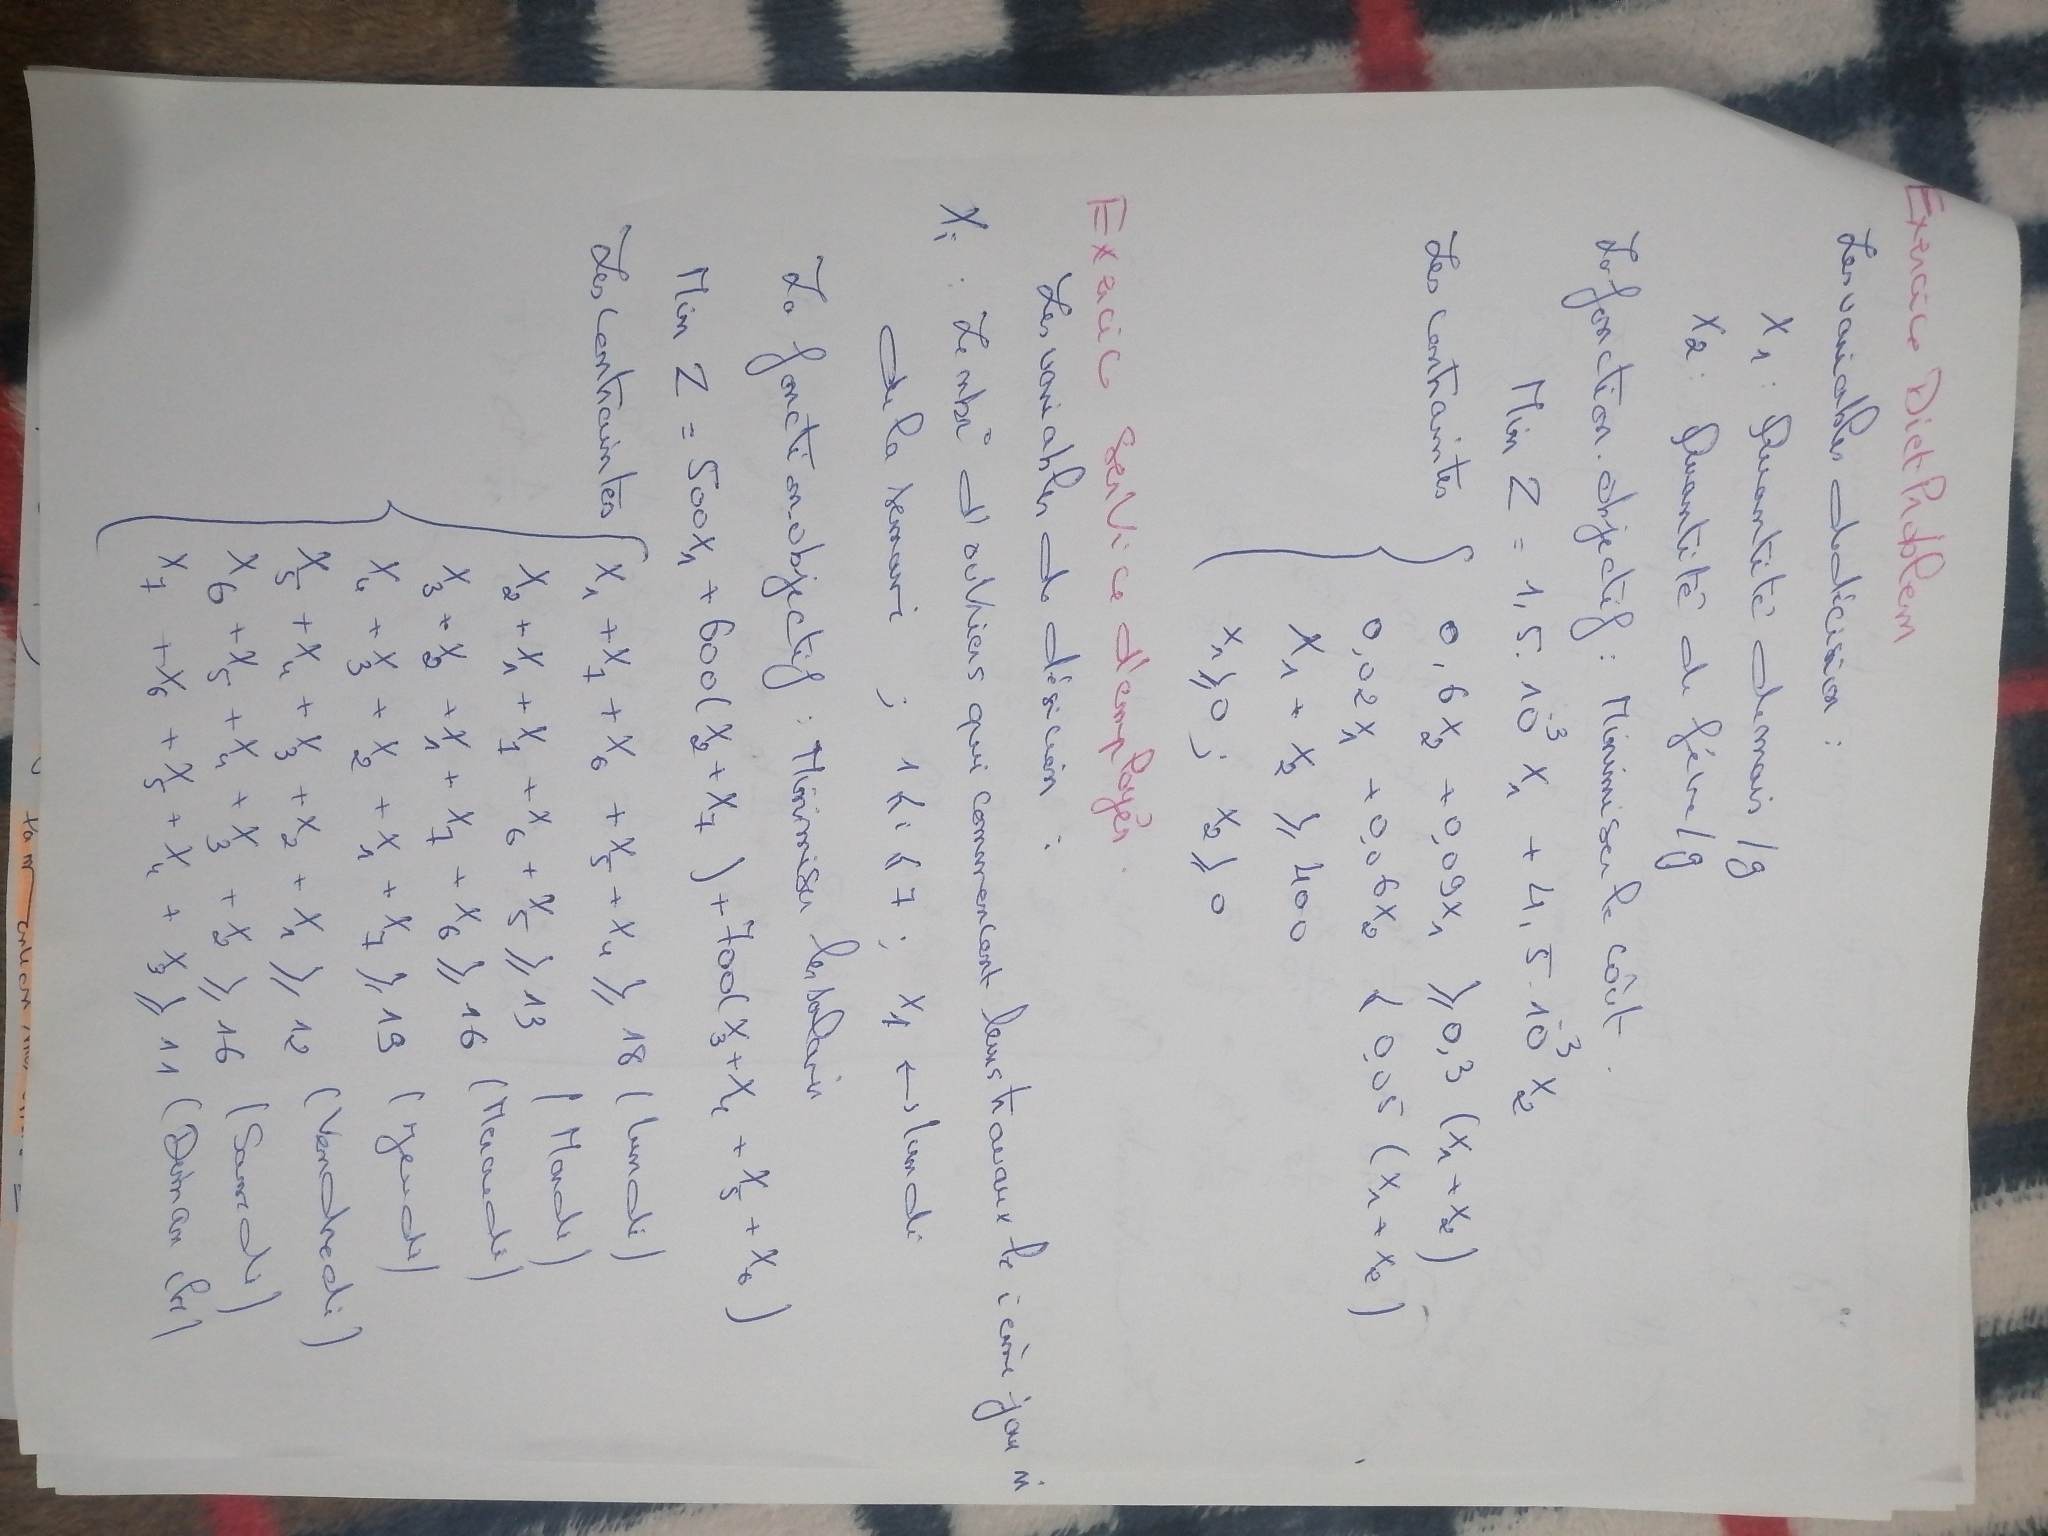 Exercice Diet Problem
Les variables de décision :
X1 : Quantité de mais /g
X2 : Quantité de féve/g
La fonction-objectif : Minimiser le coût.
Min Z = 1,5.10^-3 X1 + 4,5.10^-3 X2
Les contraintes { 0,6X2 + 0,09X1 ⩾ 0,3 (X1+X2)
0,02X1 + 0,06X2 ⩽ 0,05 (X1+X2)
X1 + X2 ⩾ 400
X1 ⩾ 0 ; X2 ⩾ 0
Exercic Service d'employés.
Les variables de désicion :
Xi : Le nbre d'ouvriers qui commencent leurs travaux le i eme jour
de la semaine ; 1 ⩽ i ⩽ 7 ; X1 ↔ lundi
La fonction-objectif : Minimiser les salaires
Min Z = 500X1 + 600(X2+X7) + 700(X3+X4+X5+X6)
Les contraintes { X1 + X7 + X6 + X5 + X4 ⩾ 18 (lundi)
X2 + X1 + X7 + X6 + X5 ⩾ 13 (Mardi)
X3 + X2 + X1 + X7 + X6 ⩾ 16 (Mercredi)
X4 + X3 + X2 + X1 + X7 ⩾ 19 (Jeudi)
X5 + X4 + X3 + X2 + X1 ⩾ 12 (Vendredi)
X6 + X5 + X4 + X3 + X2 ⩾ 16 (Samedi)
X7 + X6 + X5 + X4 + X3 ⩾ 11 (Dimanche)